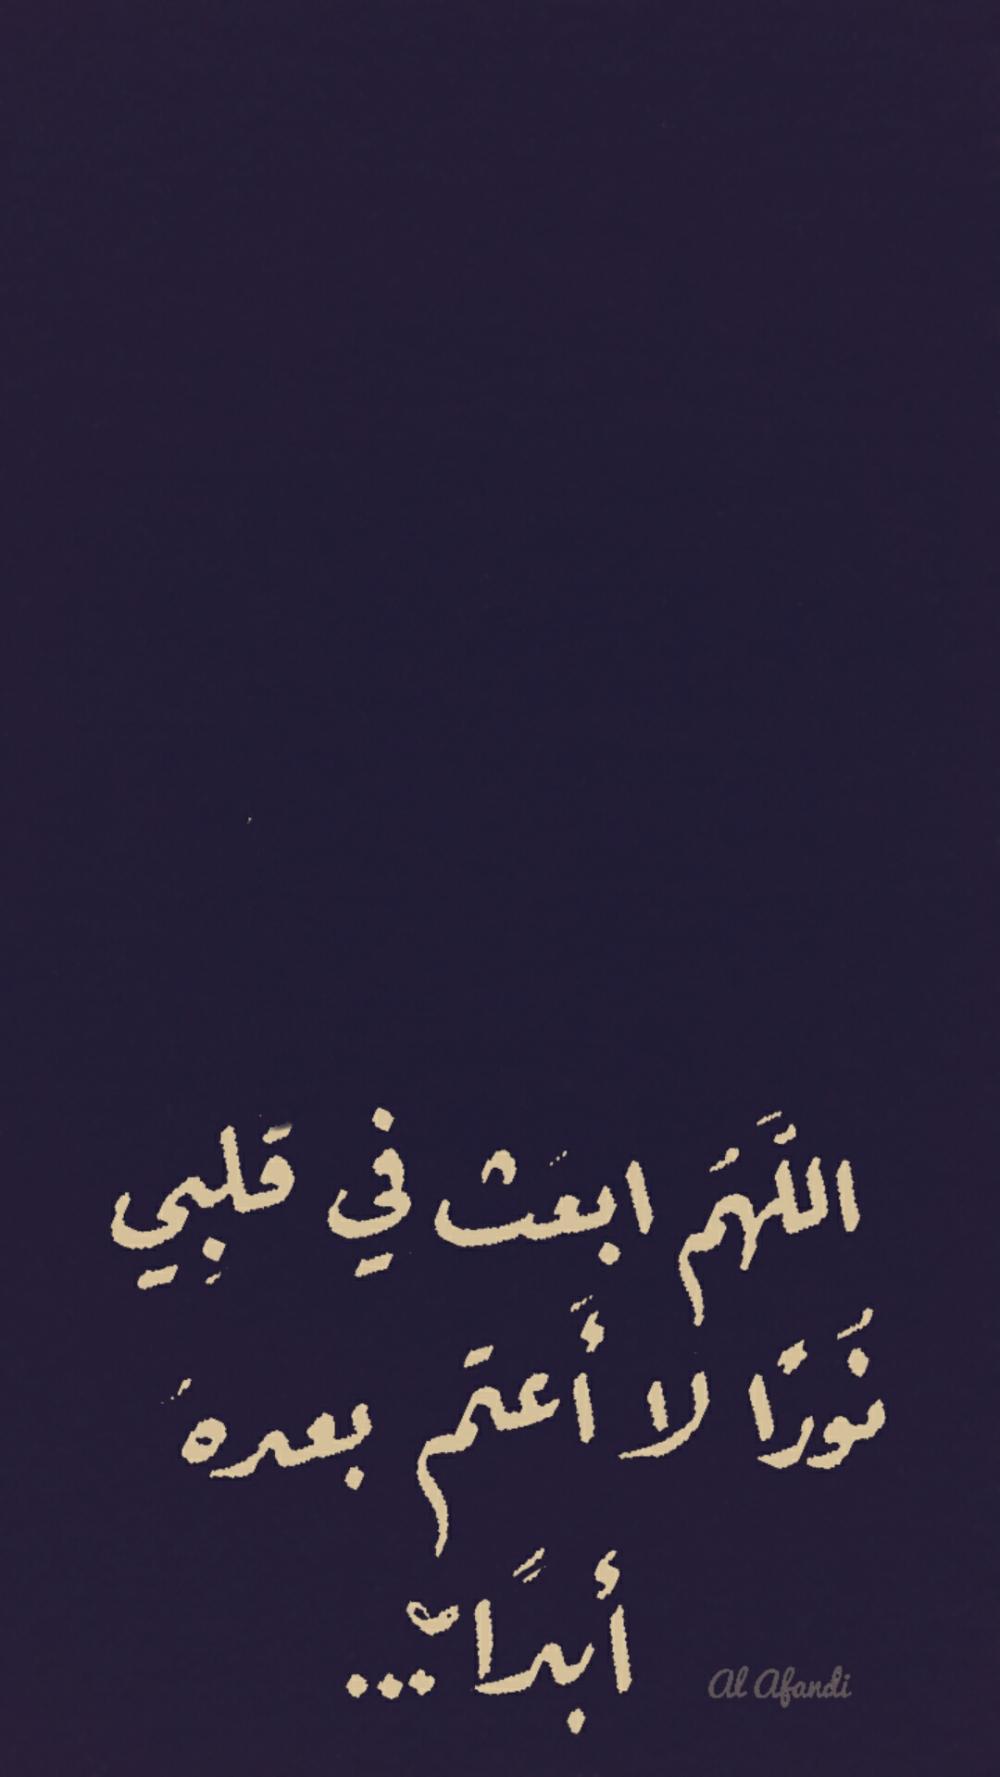 اللَّهُم ابعَث في قَلبِي
نُورًا لا أَعتم بعدهُ
أبدًا...
Al Afandi